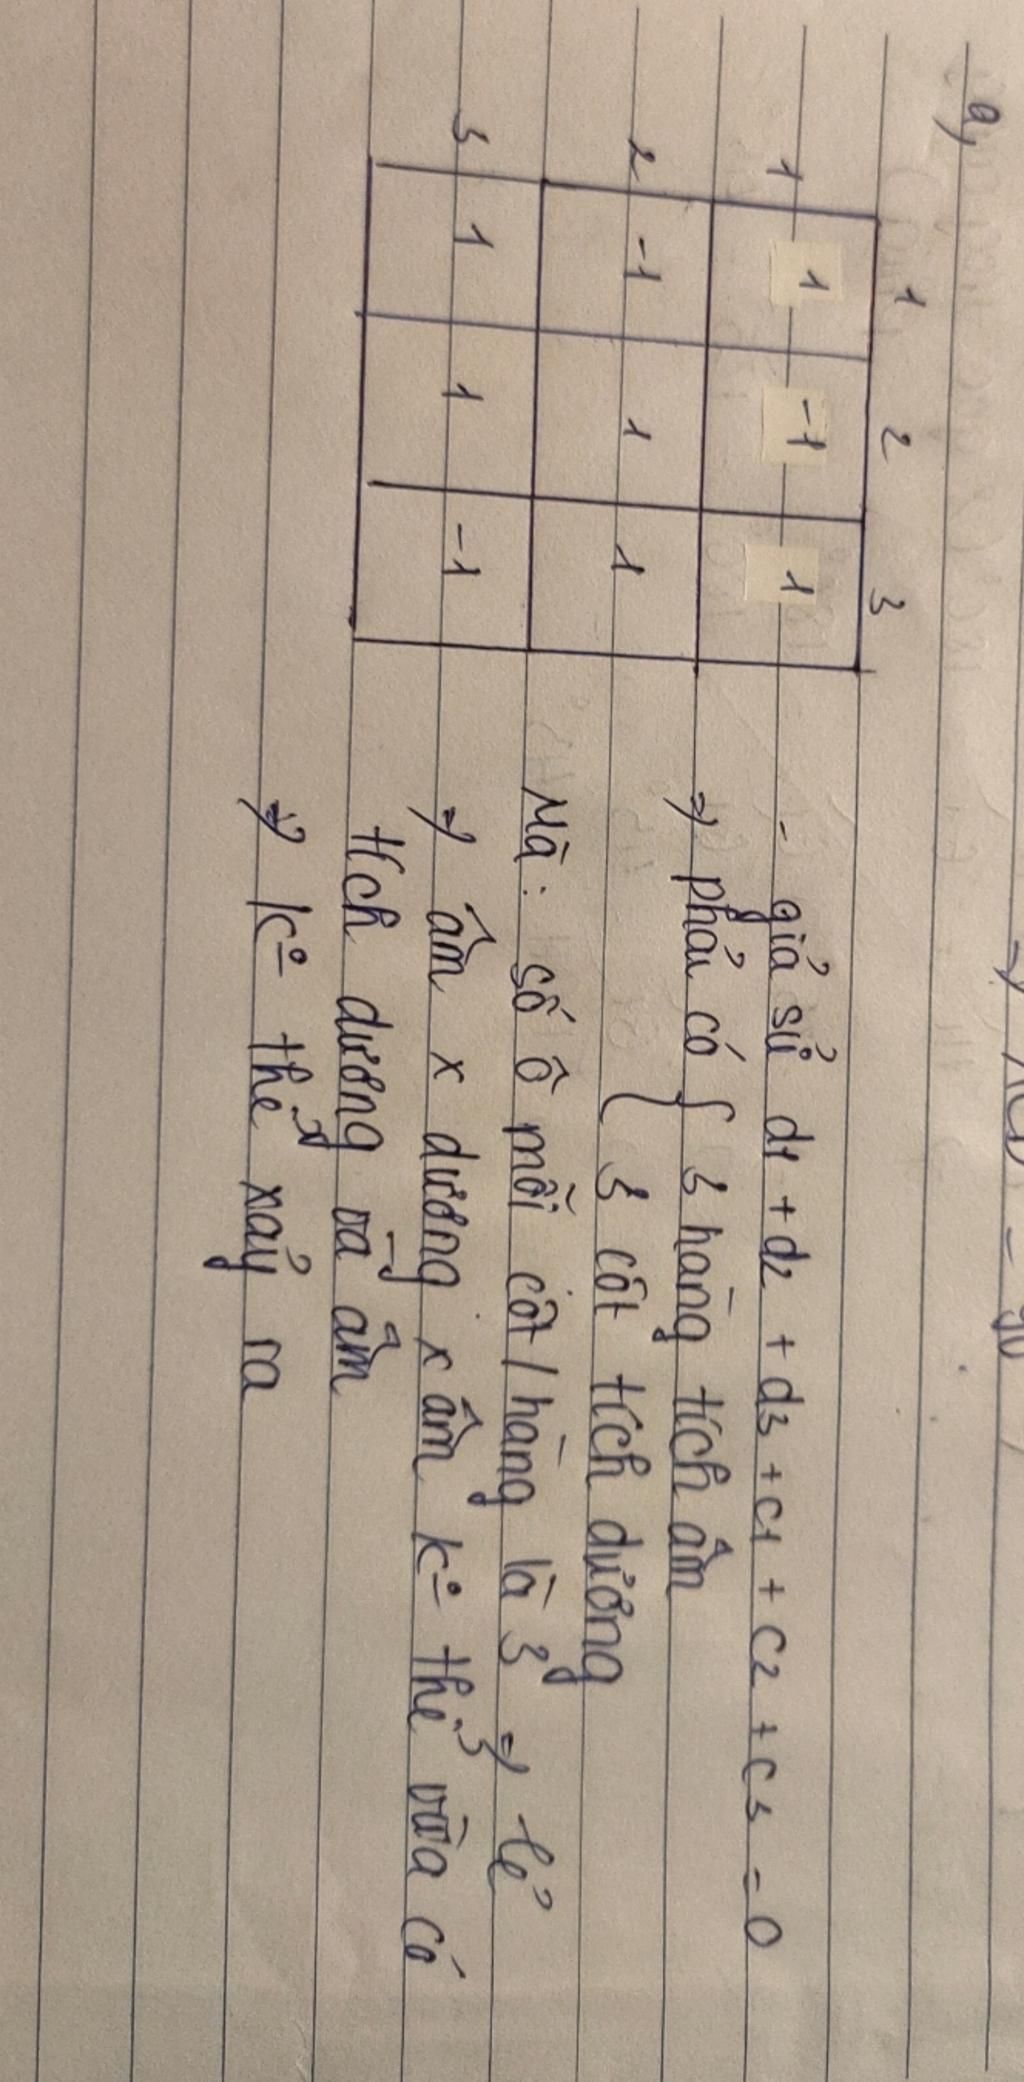 a,
1 2 3
1 1 -1 1
2 -1 1 1
3 1 1 -1
- giả sử d1 + d2 + d3 + c1 + c2 + c3 = 0
=> phải có { 3 hàng tích âm
{ 3 cột tích dương
Mà: số ô mỗi cột / hàng là 3 => lẻ
=> âm x dương x âm k° thể vừa có
tích dương và âm
=> k° thể xảy ra